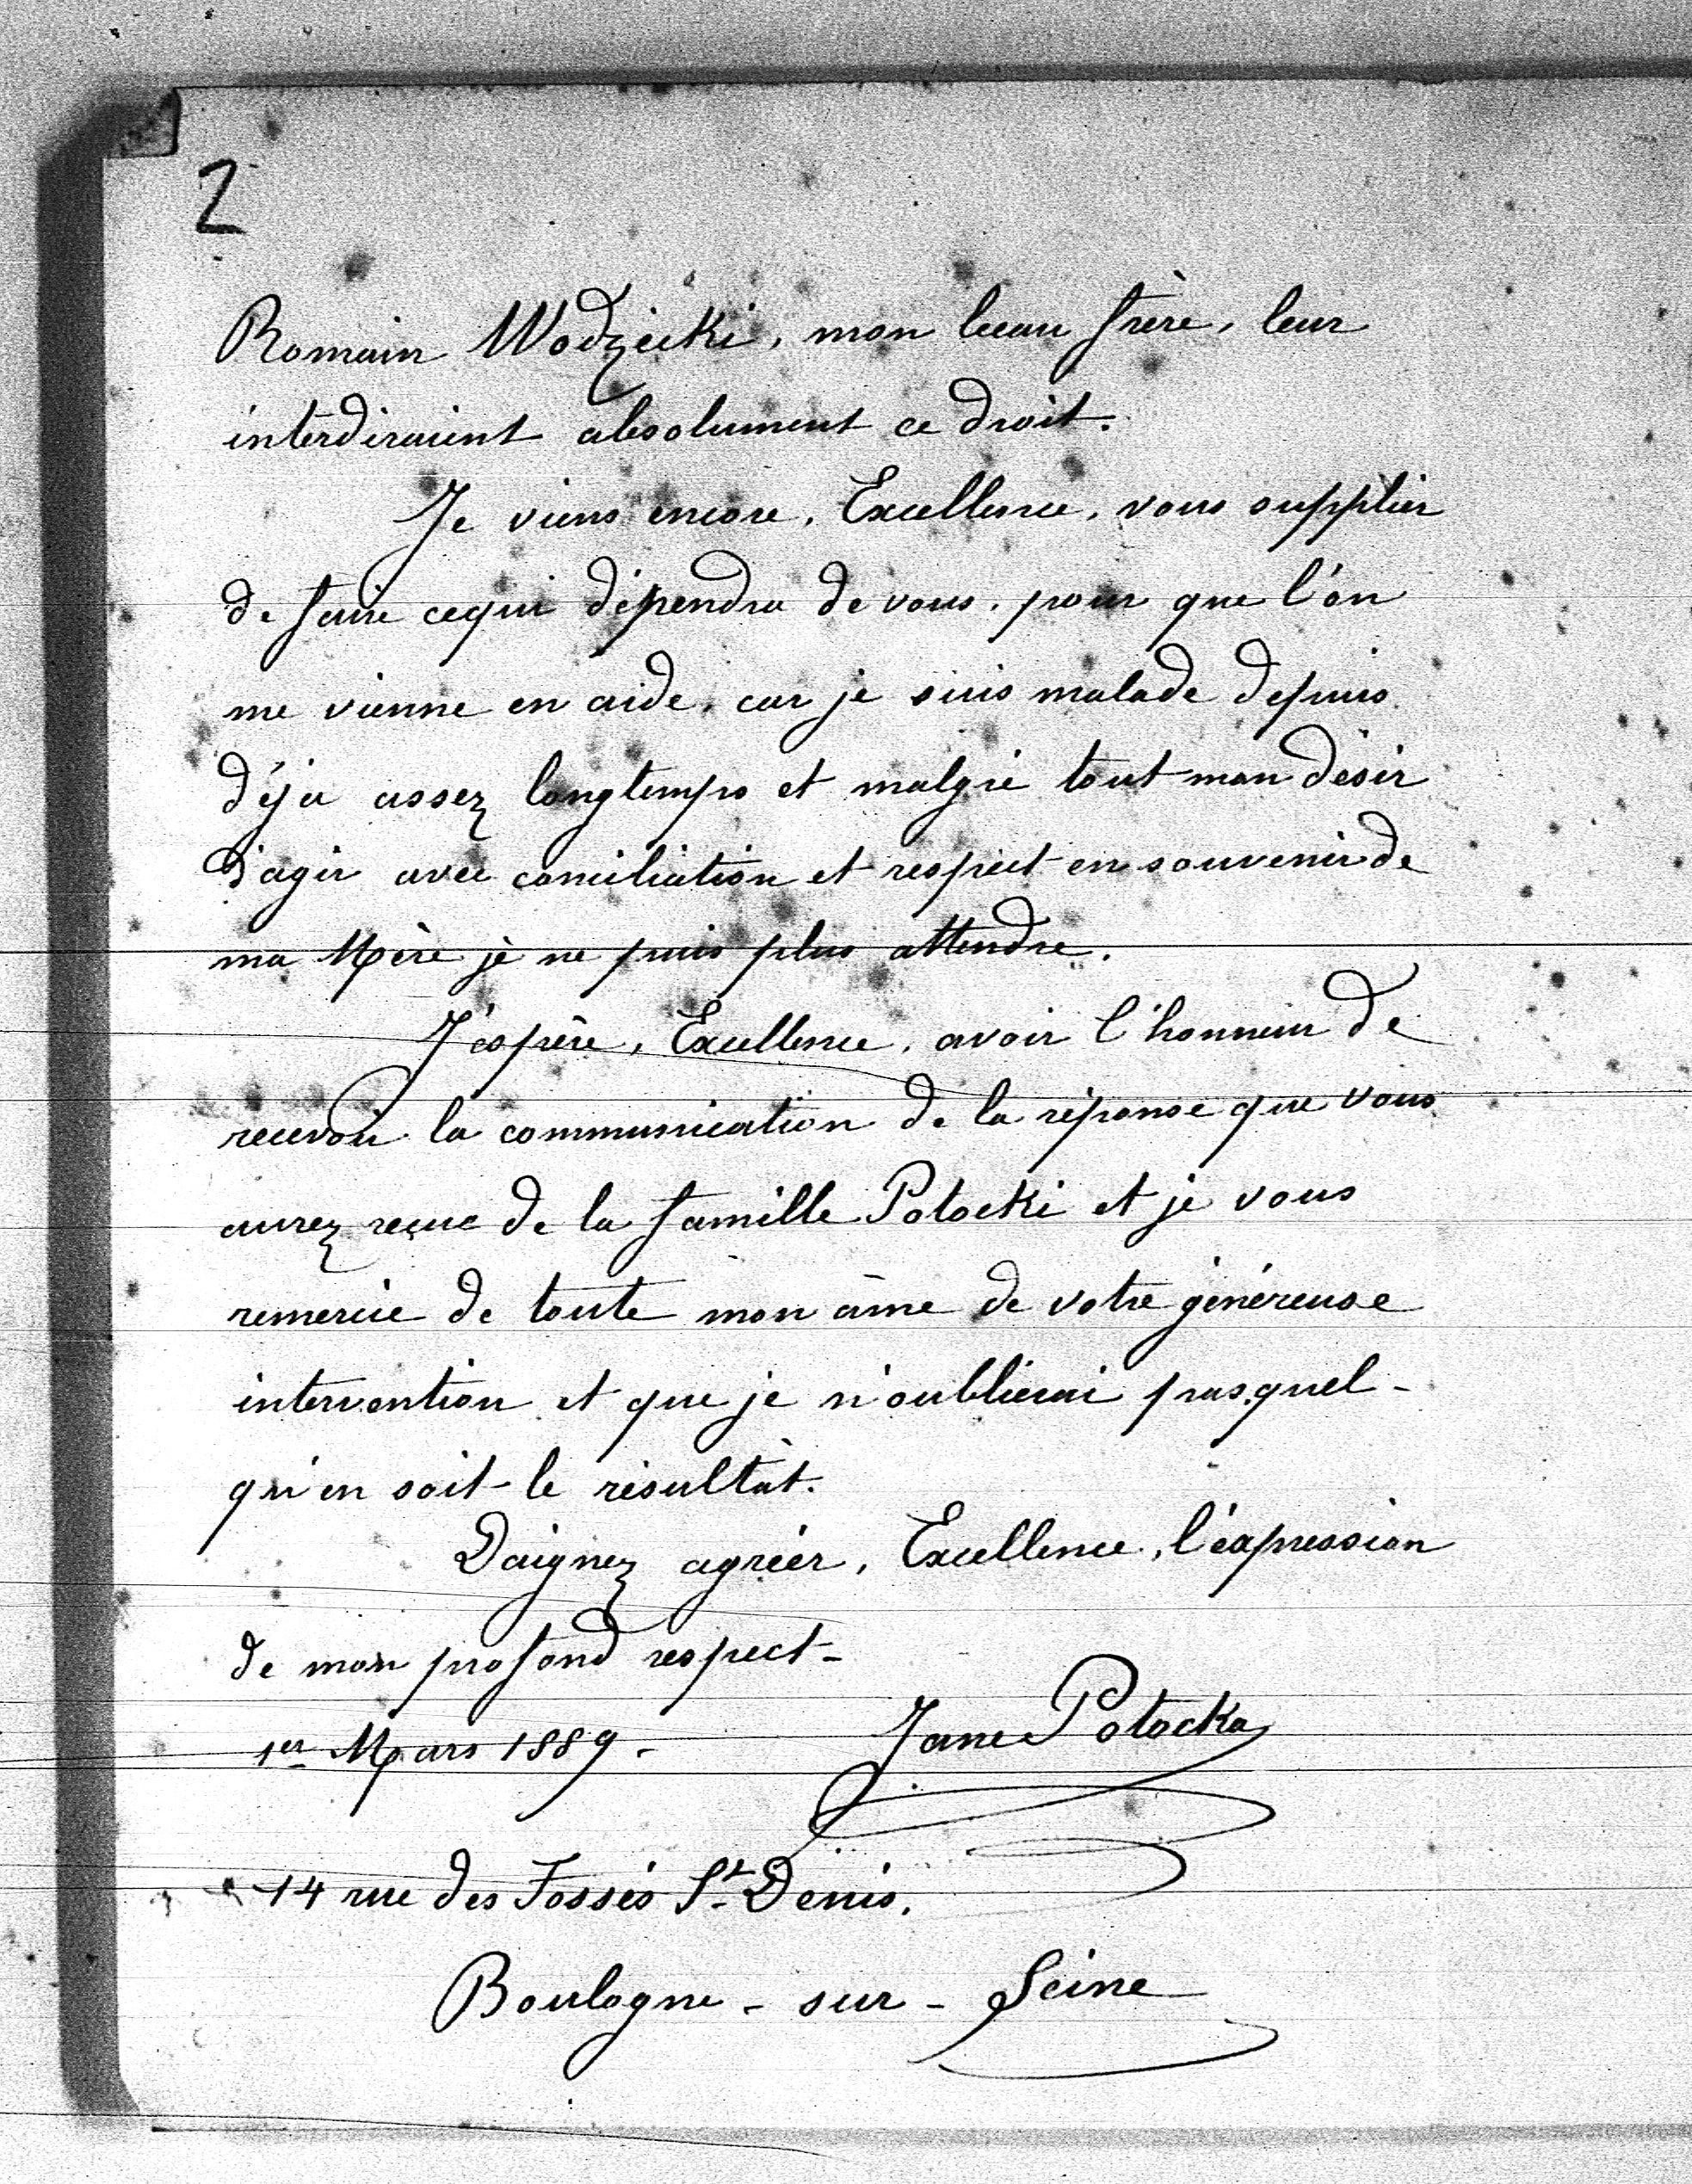 2
Romain Wodzicki, mon beau frère, leur
interdiraient absolument ce droit.
Je viens encore, Excellence, vous supplier
de faire cequi dépendra de vous, pour que l'on
me vienne en aide, car je suis malade depuis
déja assez longtemps et malgré tout mon désir
d'agir avec conciliation et respect en souvenir de
ma Mère je ne puis plus attendre.
J'espère, Excellence, avoir l'honneur de
recevoir la communication de la réponse que vous
aurez reçue de la famille Potocki et je vous
remercie de toute mon âme de votre généreuse
intervention et que je n'oublierai pas quel-
qu'en soit le résultat.
Daignez agréer, Excellence, l'expression
de mon profond respect-
1er Mars 1889. Jane Potocka
14 rue des Fossés St Denis.
Boulogne - sur - Seine